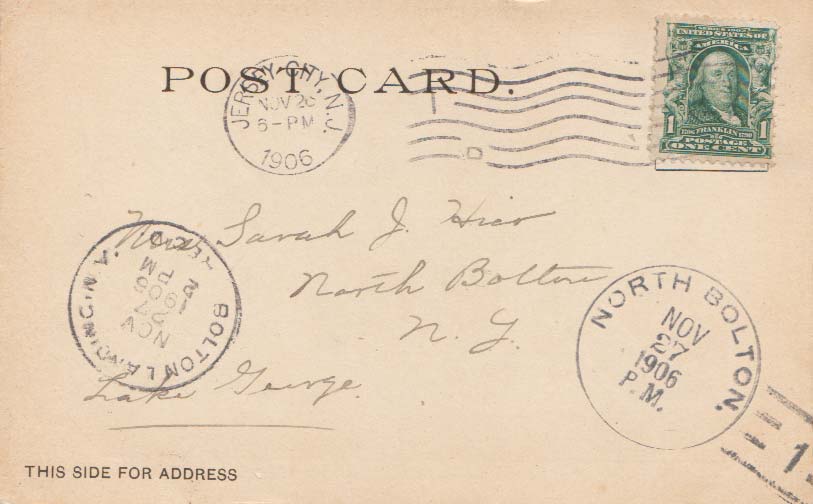 POST CARD.
JERSEY CITY, N.J.
NOV 26
6-PM
1906
SERIES 1902
UNITED STATES OF
AMERICA
1706 FRANKLIN 1790
1 POSTAGE 1
ONE CENT
Sarah J.
North Bolton
N. Y.
Lake George.
BOLTON LANDING, N.Y. REC'D.
NOV
27
1906
P M
NORTH BOLTON.
NOV
27
1906
P.M.
1
THIS SIDE FOR ADDRESS